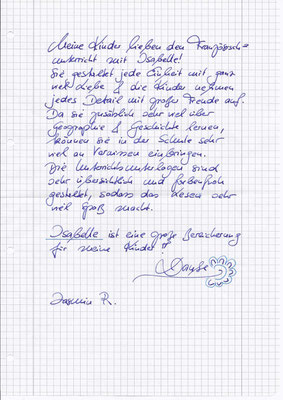 Meine Kinder lieben den Französisch=
unterricht mit Isabelle!
Sie gestaltet jede Einheit mit ganz
viel Liebe & die Kinder nehmen
jedes Detail mit großer Freude auf.
Da sie zusätzlich sehr viel über
Geographie & Geschichte lernen,
können sie in der Schule sehr
viel an Vorwissen einbringen.
Die Unterrichtsunterlagen sind
sehr übersichtlich und farbenfroh
gestaltet, sodass das Lesen sehr
viel Spaß macht.
Isabelle ist eine große Bereicherung
für meine Kinder!
Danke
Jasmin R.